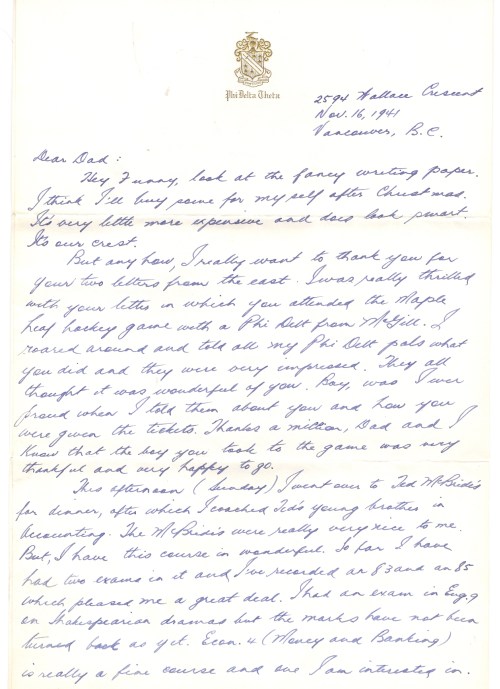 Phi Delta Theta
2594 Wallace Crescent
Nov. 16, 1941
Vancouver, B.C.
Dear Dad:
Hey Funny, look at the fancy writing paper.
I think I'll buy some for my self after Christmas.
It's very little more expensive and does look smart.
It's our crest.
But any how, I really want to thank you for
your two letters from the east. I was really thrilled
with your letter in which you attended the Maple
Leaf hockey game with a Phi Delt from McGill. I
roared around and told all my Phi Delt pals what
you did and they were very impressed. They all
thought it was wonderful of you. Boy, was I ever
proud when I told them about you and how you
were given the tickets. Thanks a million, Dad and I
know that the boy you took to the game was very
thankful and very happy to go.
This afternoon (Sunday) I went over to Ted McBride's
for dinner, after which I coached Ted's young brother in
Accounting. The McBride's were really very nice to me.
But, I have this course in wonderful. So far I have
had two exams in it and I've recorded an 83 and an 85
which pleased me a great deal. I had an exam in Eng. 9
on Shakespearian dramas but the marks have not been
turned back as yet. Econ. 4 (Money and Banking)
is really a fine course and one I am interested in.